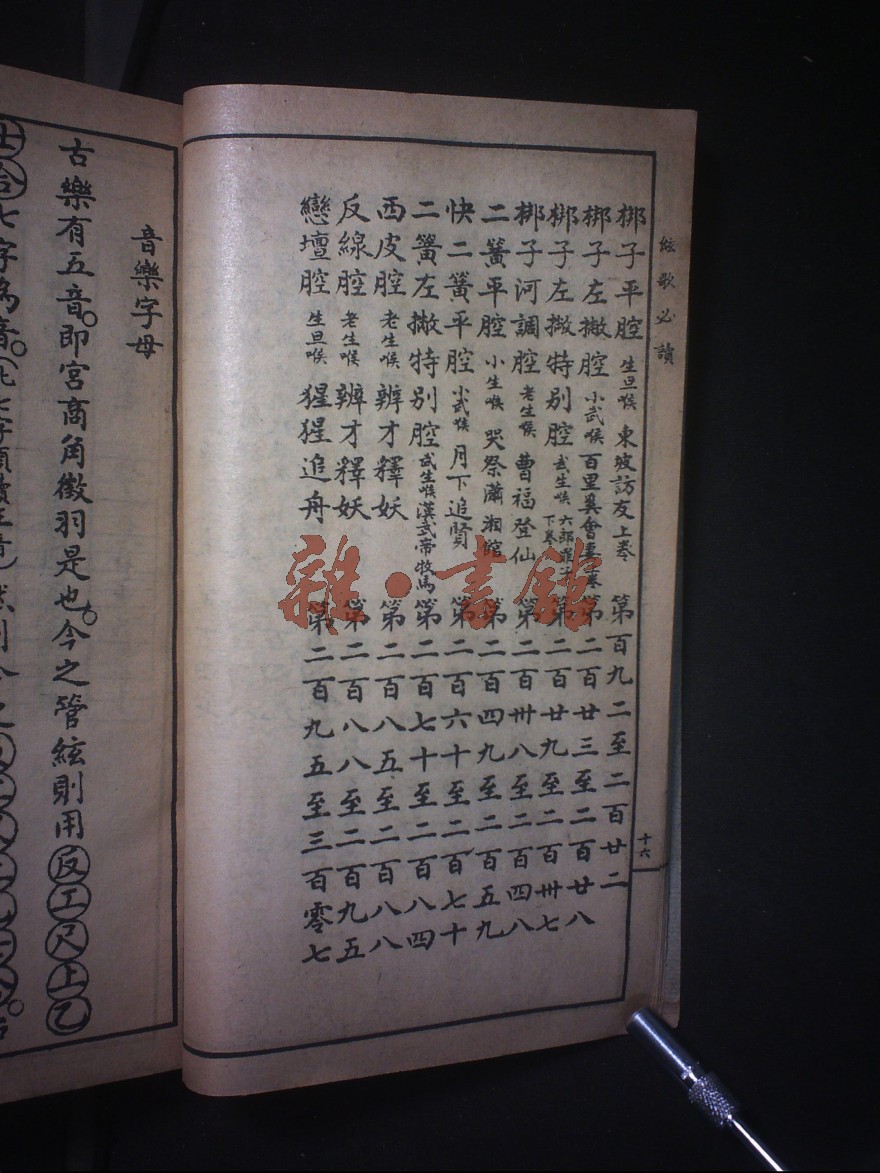 絃歌必讀
十六
梆子平腔 生旦喉 東坡訪友上卷 第百九二至二百廿二
梆子左撇腔 小武喉 百里奚會妻 第二百廿三至二百廿八
梆子左撇特別腔 武生喉 六郎罪子下卷 第二百廿九至二百卅七
梆子河調腔 老生喉 曹福登仙 第二百卅八至二百四八
二簧平腔 小生喉 哭祭瀟湘館 第二百四九至二百五九
快二簧平腔 小武喉 月下追賢 第二百六十至二百七十
二簧左撇特別腔 武生喉 漢武帝牧馬 第二百七十至二百八四
西皮腔 老生喉 辨才釋妖 第二百八五至二百八八
反線腔 老生喉 辨才釋妖 第二百八八至二百九五
戀壇腔 生旦喉 猩猩追舟 第二百九五至三百零七
雜·書館
音樂字母
古樂有五音。即宮商角徵羽是也。今之管絃則用反工尺上乙
士合七字為音。